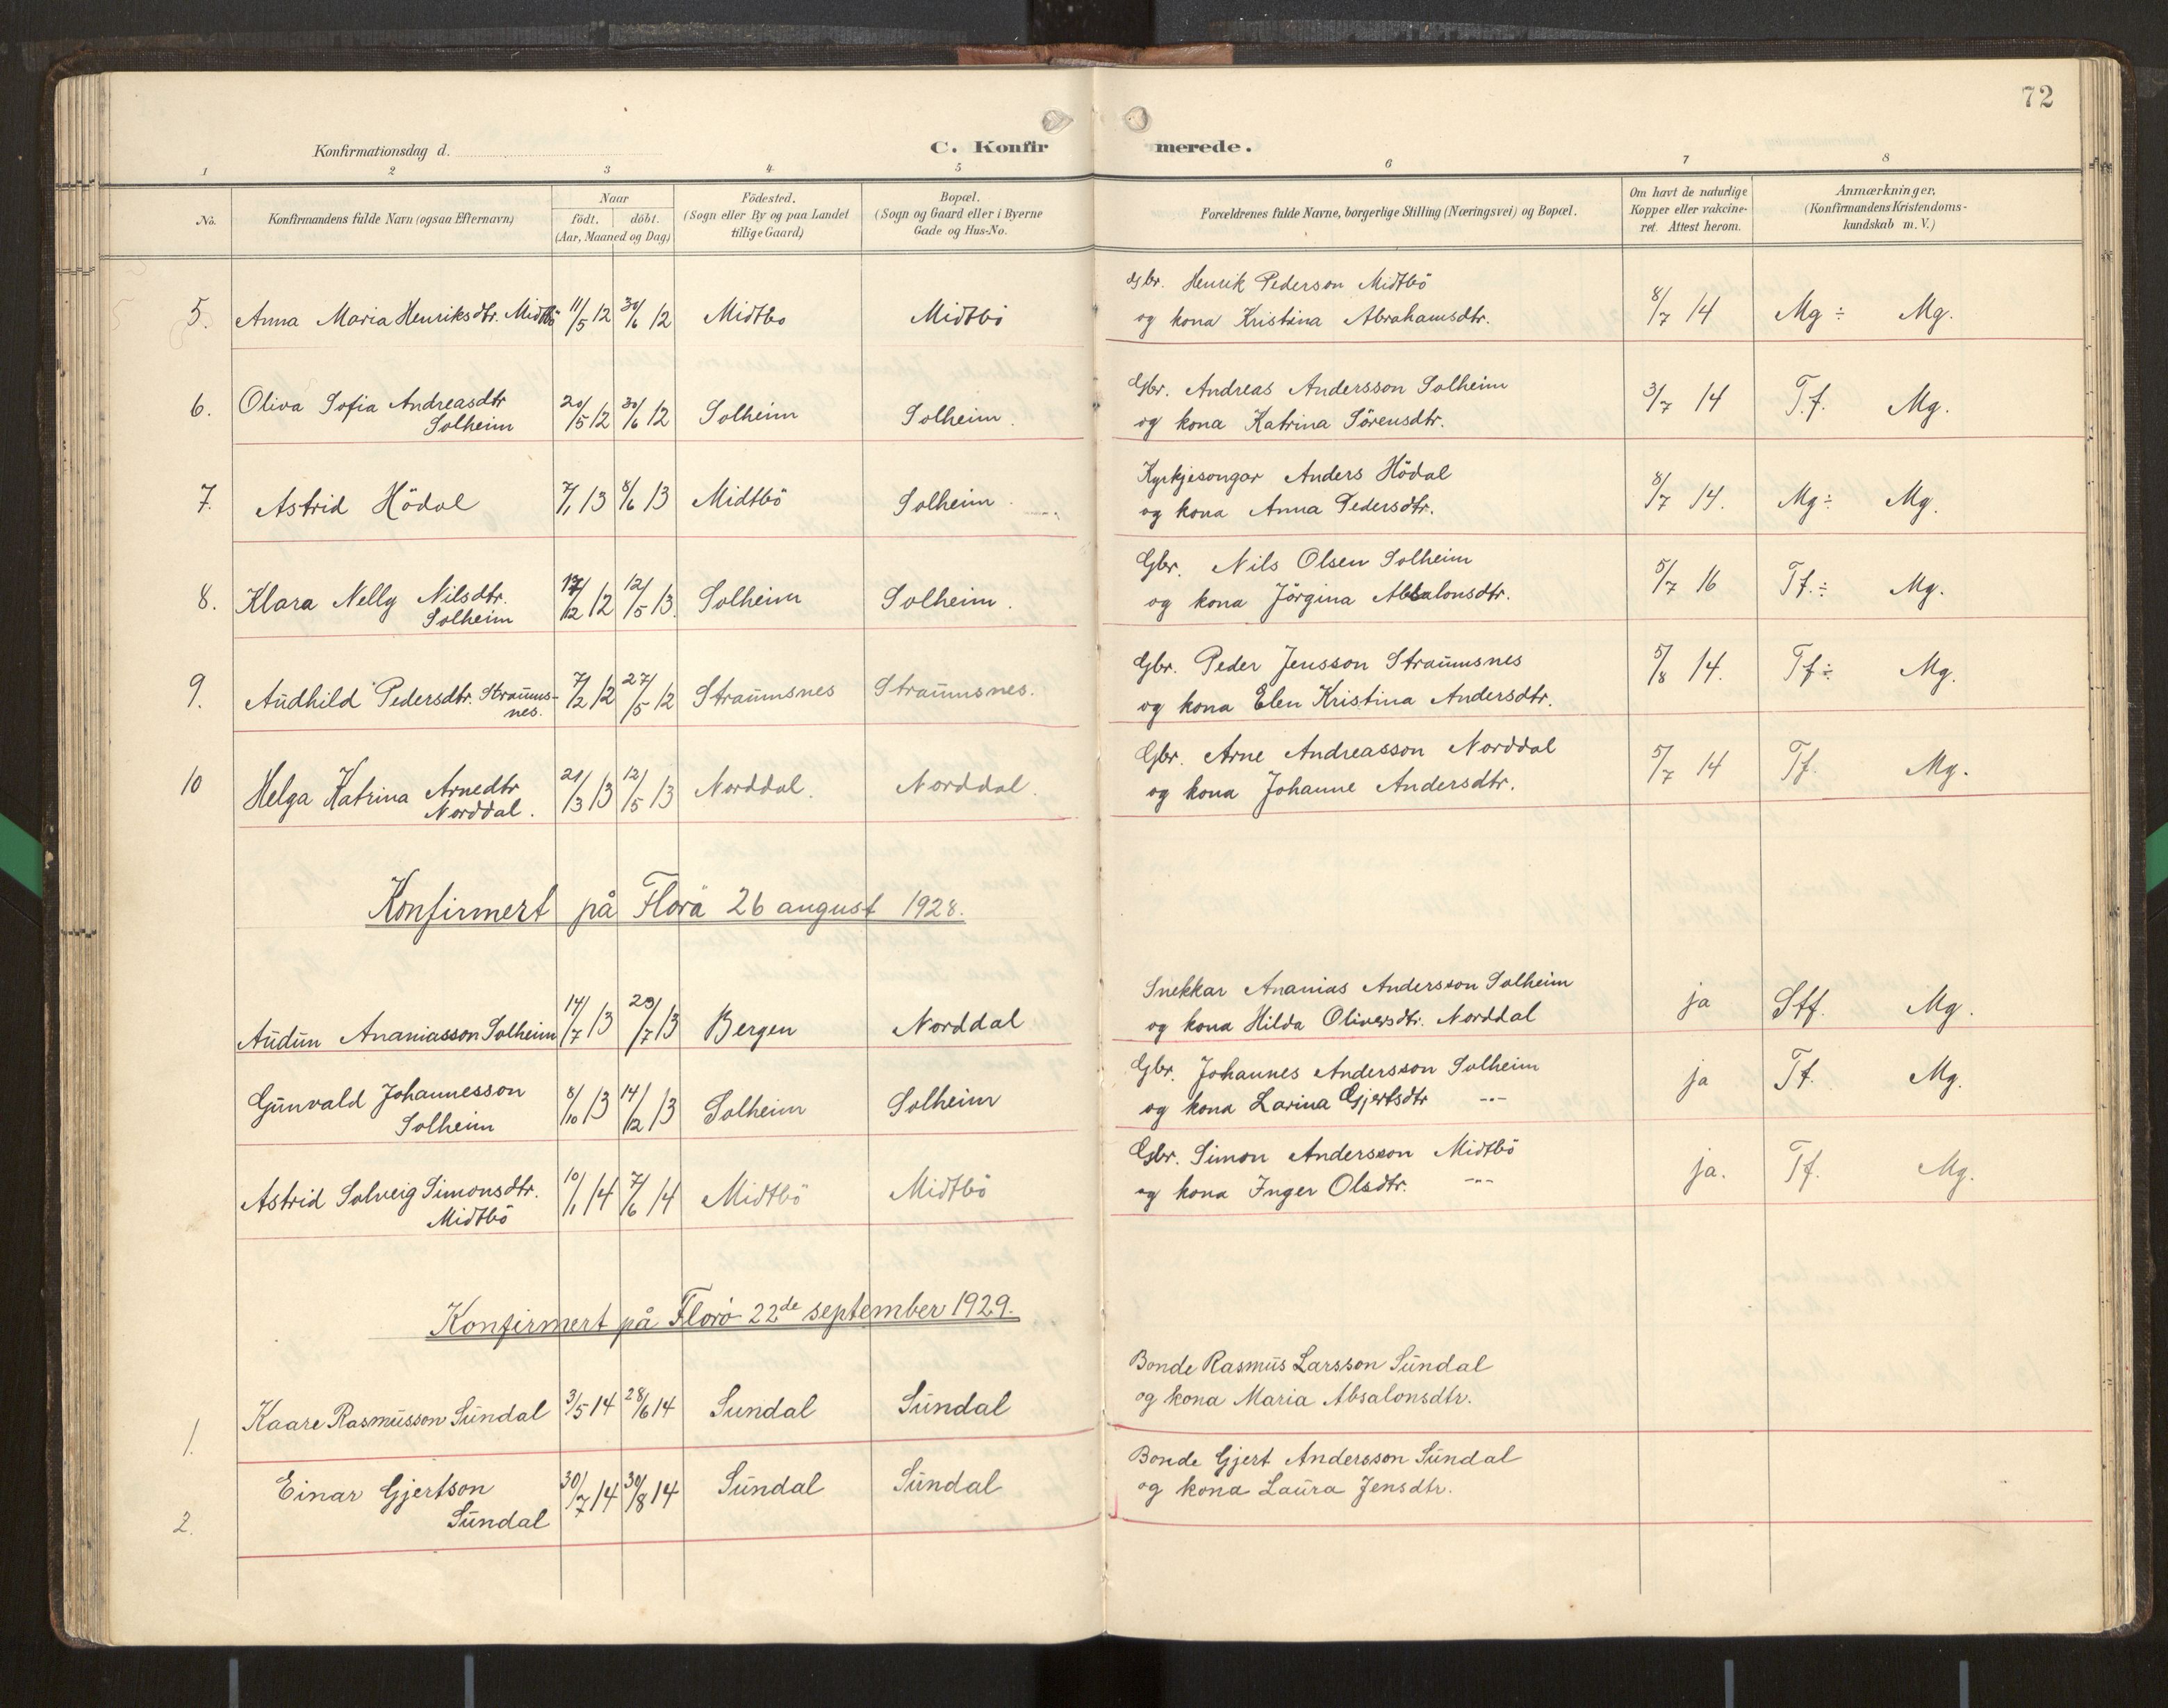 72
Konfirmationsdag d.
C. Konfirmerede.
1 2 3 4 5 6 7 8
No.
Konfirmandens fulde Navn (ogsaa Efternavn)
Naar
födt. döbt.
(Aar, Maaned og Dag)
Födested.
(Sogn eller By og paa Landet
tillige Gaard)
Bopæl.
(Sogn og Gaard eller i Byerne
Gade og Hus-No.
Forældrenes fulde Navne, borgerlige Stilling (Næringsvei) og Bopæl.
Om havt de naturlige
Kopper eller vakcine-
ret. Attest herom.
Anmærkninger.
(Konfirmandens Kristendoms-
kundskab m. V.)
5. Anna Maria Henriksdtr. Midtbö 11/5 12 30/6 12 Midtbo Midtbö
Gbr. Henrik Pederson Midtbö
og kona Kristina Abrahamsdtr. 8/7 14 Mg ÷ Mg.
6. Oliva Sofia Andreasdtr
Solheim 20/5 12 30/6 12 Solheim Solheim.
Gbr. Andreas Andersson Solheim
og kona Katrina Sörensdtr. 3/7 14 T.f. Mg.
7. Astrid Hödal 7/1 13 8/6 13 Midtbö Solheim.
Kyrkjesongar Anders Hödal
og kona Anna Pedersdtr. 8/7 14. Mg ÷ Mg.
8. Klara Nelly Nilsdtr.
Solheim 17/12 12 12/5 13. Solheim Solheim.
Gbr. Nils Olsen Solheim
og kona Jörgina Absalonsdtr. 5/7 16 Tf. ÷ Mg.
9. Audhild Pedersdtr. Straums-
nes. 7/2 12 27/5 12 Straumsnes Straumsnes.
Gbr. Peder Jensson Straumsnes
og kona Elen Kristina Andersdtr. 5/8 14. Tf ÷ Mg.
10 Helga Katrina Arnedtr
Norddal. 21/3 13 12/5 13 Norddal. Norddal.
Gbr. Arne Andreasson Norddal
og kona Johanne Andersdtr. 5/7 14 Tf. Mg.
Konfirmert på Florö 26 august 1928.
Audun Ananiasson Solheim 14/7 13 29/7 13 Bergen Norddal
Snekkar Ananias Andersson Solheim
og kona Hilda Oliversdtr. Norddal ja Stf. Mg.
Gunvald Johannesson
Solheim 8/10 13 14/12 13 Solheim Solheim
Gbr. Johannes Andersson Solheim
og kona Larina Gjertsdtr -"- ja Tf. Mg.
Astrid Solveig Simonsdtr.
Midtbö 10/1 14 7/6 14 Midtbö Midtbö
Gbr. Simon Andersson Midtbö
og kona Inger Olsdtr. -"- ja. Tf. Mg.
Konfirmert på Florö 22de september 1929.
1. Kaare Rasmusson Sundal 3/5 14 28/6 14 Sundal Sundal
Bonde Rasmus Larsson Sundal
og kona Maria Absalonsdtr.
2. Einar Gjertson
Sundal 30/7 14 30/8 14 Sundal Sundal
Bonde Gjert Andersson Sundal
og kona Laura Jensdtr.